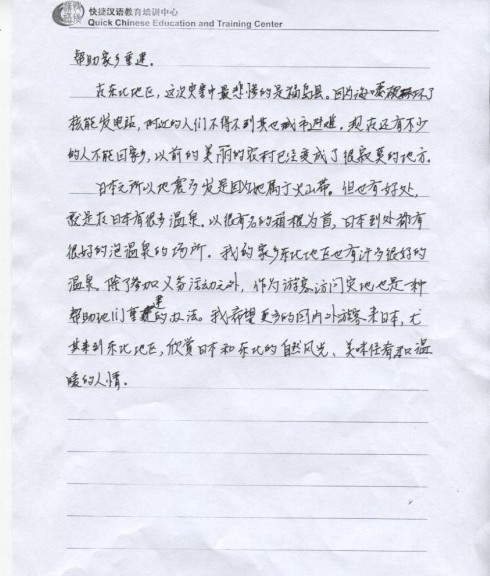 快捷汉语教育培训中心
Quick Chinese Education and Training Center
帮助家乡重建。
在东北地区，这次灾害中最悲惨的是福岛县。因为海啸破坏了
核能发电站，附近的人们不得不到其他城市避难。现在还有不少
的人不能回家乡，以前的美丽的农村已经变成了很寂寞的地方。
日本之所以地震多发是因为她属于火山带。但也有好处，
就是在日本有很多温泉。以很有名的箱根为首，日本到处都有
很好的泡温泉的场所。我的家乡东北地区也有许多很好的
温泉。除了参加义务活动之外，作为游客访问实地也是一种
帮助他们重建的办法。我希望更多的国内外游客来日本，尤
其来到东北地区，欣赏日本和东北的自然风光、美味佳肴和温
暖的人情。